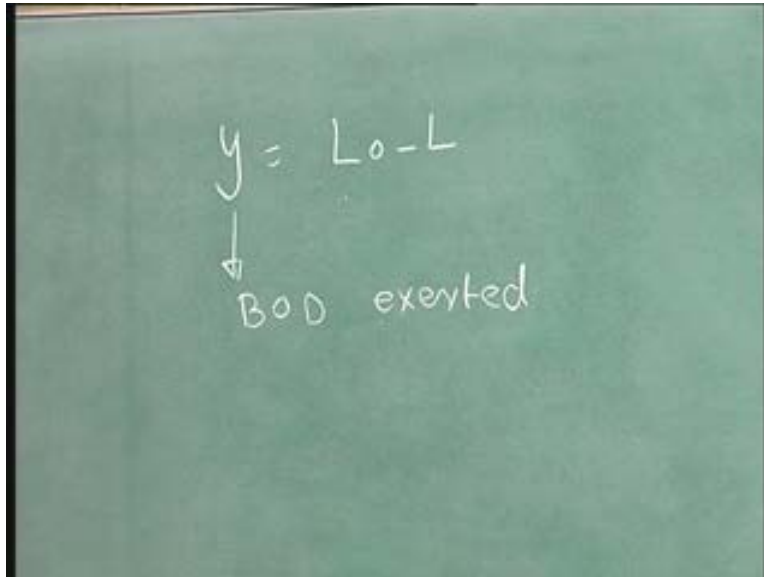 y = Lo - L
BOD exerted